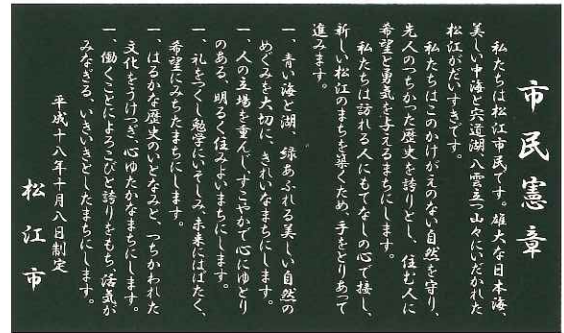 市民憲章
私たちは松江市民です。雄大な日本海、
美しい中海と宍道湖、八雲立つ山々にいだかれた
松江がだいすきです。
私たちはこのかけがえのない自然を守り、
先人のつちかった歴史を誇りとし、住む人に
希望と勇気を与えるまちにします。
私たちは訪れる人にもてなしの心で接し、
新しい松江のまちを築くため、手をとりあって
進みます。
一、青い海と湖、緑あふれる美しい自然の
めぐみを大切に、きれいなまちにします。
一、人の立場を重んじ、すこやかで心にゆとり
のある、明るく住みよいまちにします。
一、礼をつくし勉学にいそしみ、未来にはばたく、
希望にみちたまちにします。
一、はるかな歴史のいとなみと、つちかわれた
文化をうけつぎ、心ゆたかなまちにします。
一、働くことによろこびと誇りをもち、活気が
みなぎる、いきいきとしたまちにします。
平成十八年十月八日制定
松江市